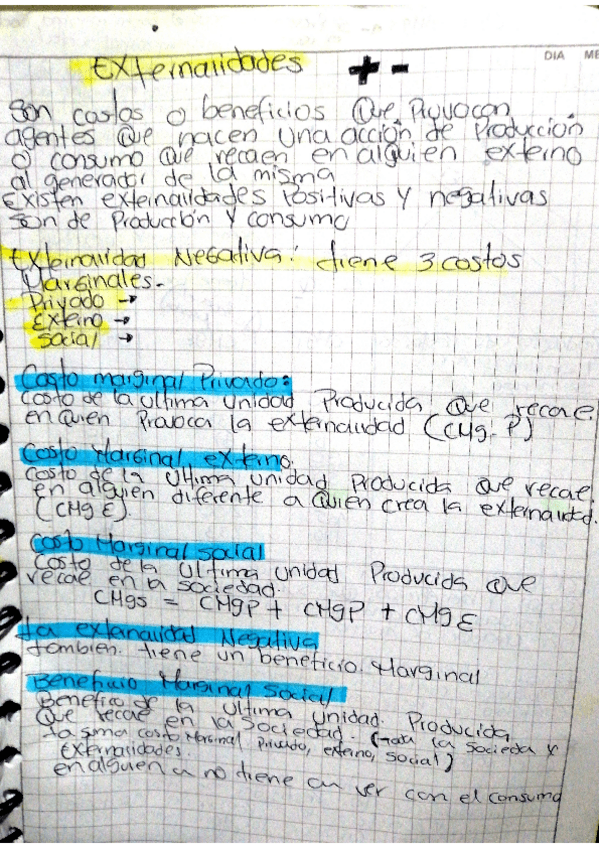 DIA ME
Externalidades + -
Son costos o beneficios que Provocan
agentes que hacen una acción de Producción
o consumo que recaen en alguien externo
al generador de la misma
Existen externalidades Positivas y negativas
son de Producción y consumo
Externalidad Negativa: tiene 3 costos
Marginales.
Privado →
Externo →
Social →
Costo marginal Privado:
Costo de la ultima unidad Producida que recae
en quien Provoca la externalidad (CMg.P)
Costo Marginal externo.
Costo de la Ultima unidad Producida que recae
en alguien diferente a quien crea la externalidad.
(CMg E).
Costo Marginal social
Costo de la Ultima unidad Producida que
recae en la sociedad.
CMgs = CMgP + CMgP + CMgE
La externalidad Negativa
tambien. tiene un beneficio. Marginal
Beneficio Marginal Social
Benefico de la Ultima unidad. Producida
que recae en la Sociedad.
la suma costo Marginal Privado, externo, social) (toda la Socieda y
Externalidades.
en alguen no tiene an ver con el consumo